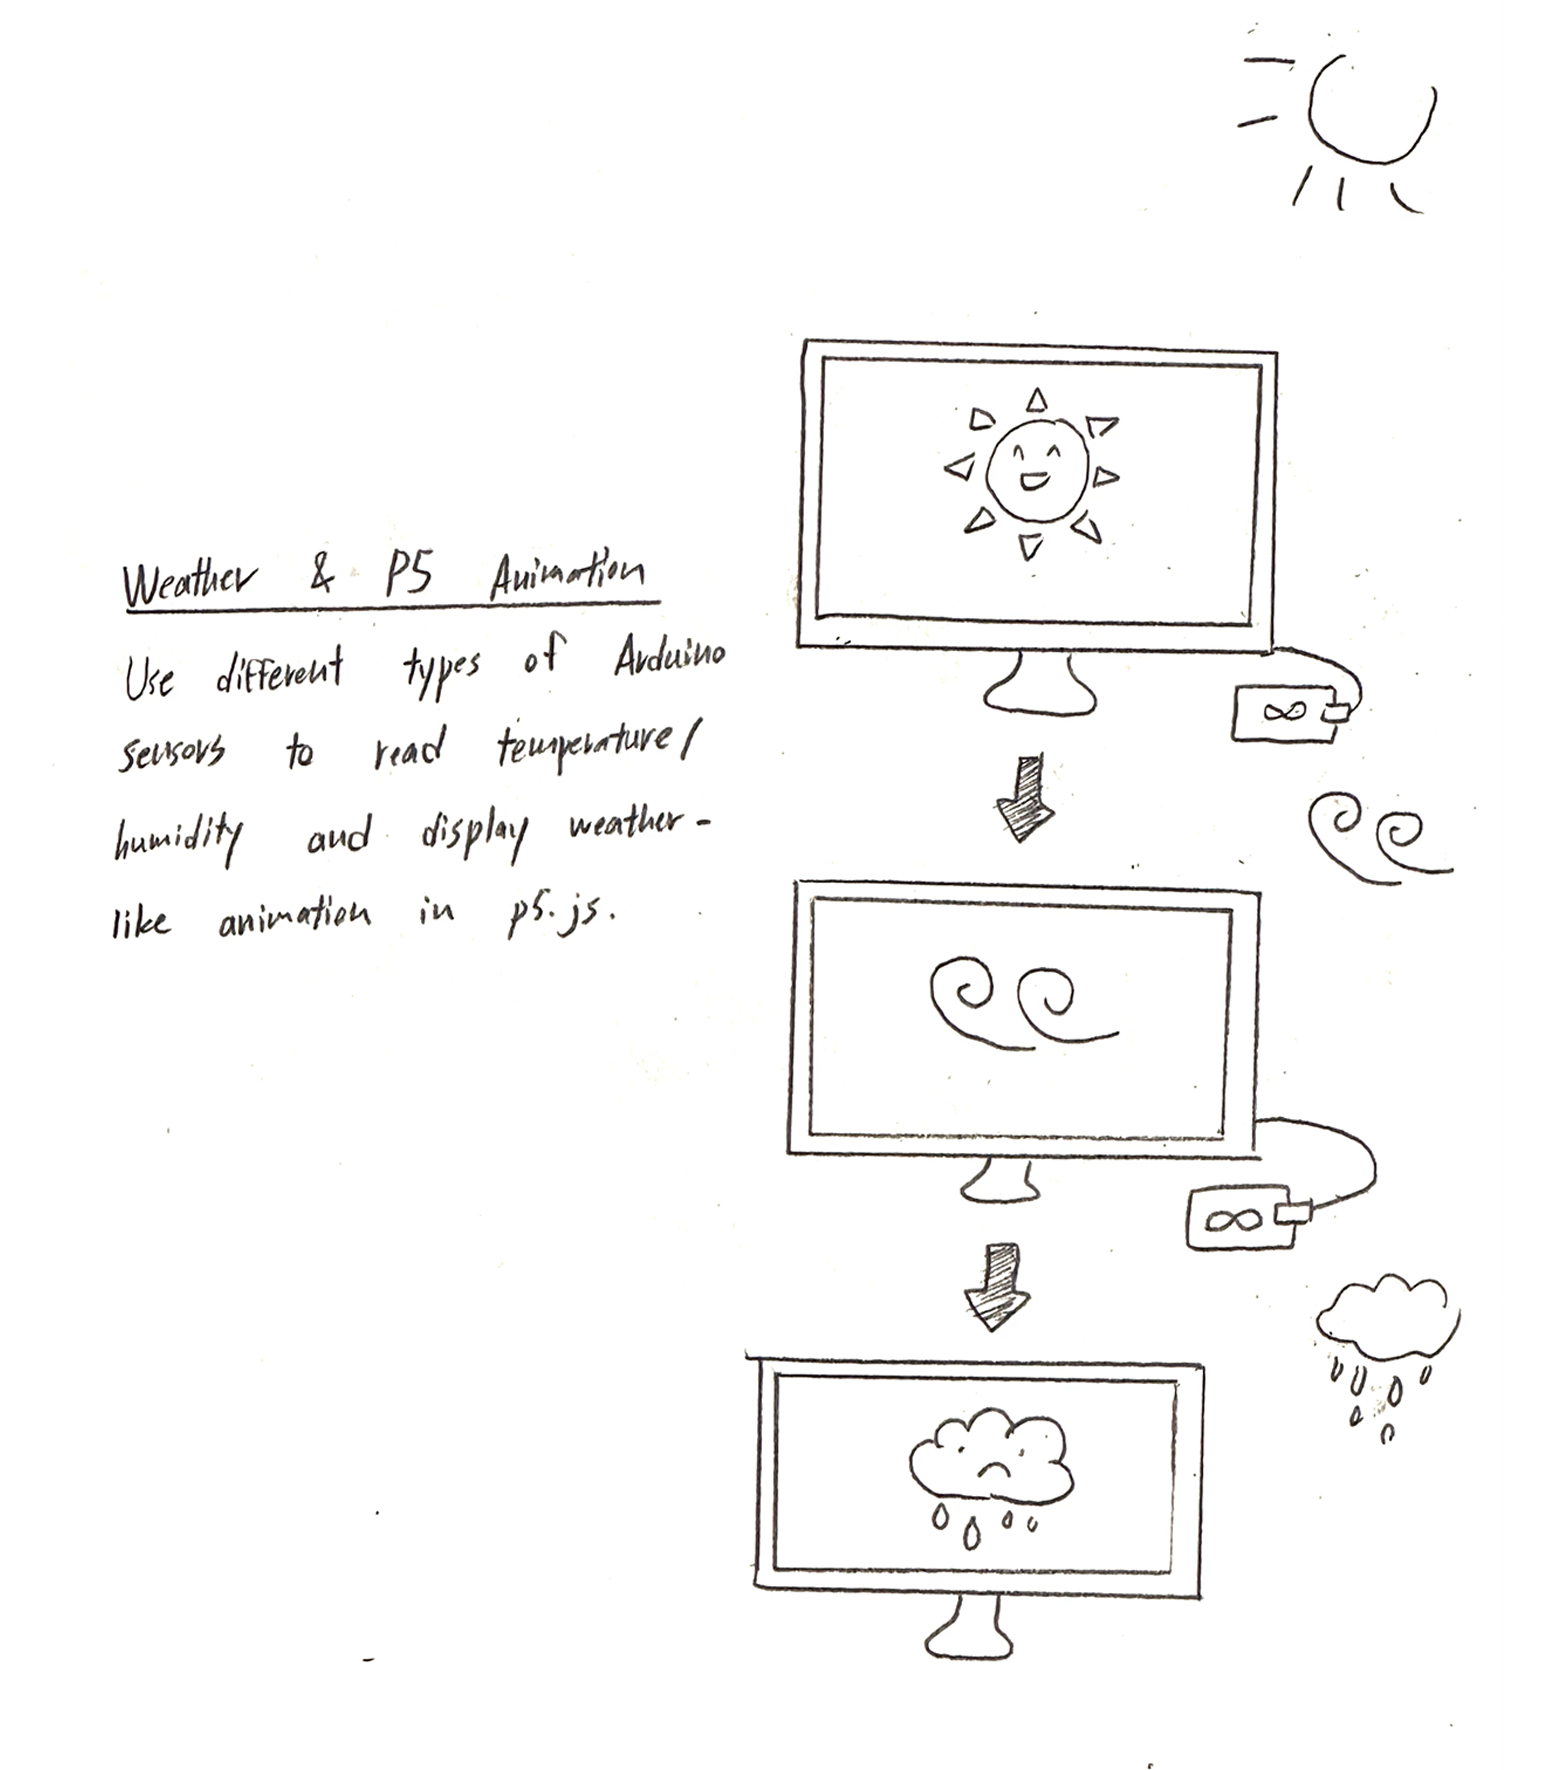 Weather & P5 Animation
Use different types of Arduino
sensors to read temperature/
humidity and display weather-
like animation in p5.js.